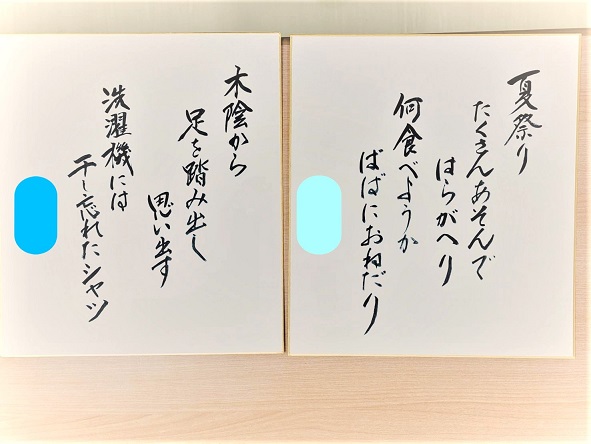 夏祭り
たくさんあそんで
はらがへり
何食べようか
ばばにおねだり
木陰から
足を踏み出し
思い出す
洗濯機には
干し忘れたシャツ